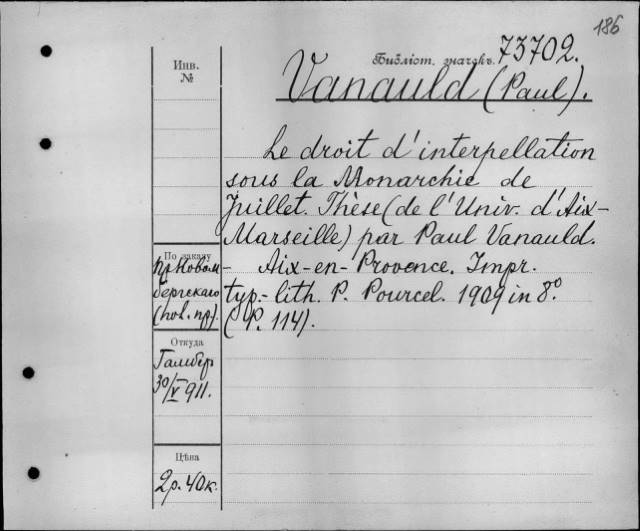 186
Библіот. значекъ. 73702.
Инв.
№
Vanauld (Paul).
Le droit d'interpellation
sous la Monarchie de
Juillet. Thèse (de l'Univ. d'Aix-
Marseille) par Paul Vanauld.
– Aix-en-Provence. Impr.
typ.-lith. P. Pourcel. 1909 in 8°.
(P. 114).
По заказу
пр. Новом-
бергскаго
(пол. пр.).
Откуда
30/V 911.
Цѣна
2 р. 40 к.